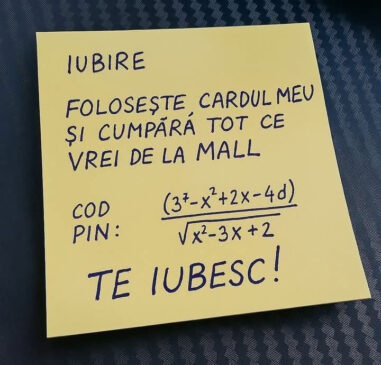 IUBIRE
FOLOSEȘTE CARDUL MEU
ȘI CUMPĂRĂ TOT CE
VREI DE LA MALL
COD PIN: (3⁷-x²+2x-4d) / √x²-3x+2
TE IUBESC!